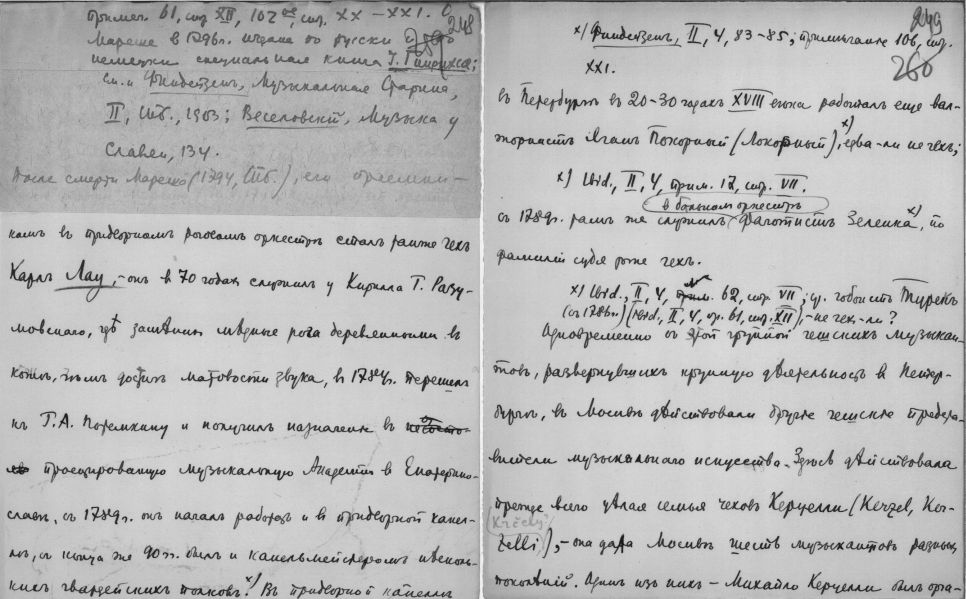 примеч. 61, стр. XII, 102ое стр. XX – XXI. О
248
Мареше в 1796 г. издана по русски и по
немецки специальная книга Г. Гинрихса;
см. и Финдейзен, Музыкальная Старина,
II, Спб., 1903; Веселовский, Музыка у
Славян, 134.
После смерти Мареша (1794, Спб.), его преемни–
комъ въ придворномъ роговомъ оркестрѣ сталъ также чехъ
Карлъ Лау, – онъ в 70 годахъ служилъ у Кирилла Г. Разу-
мовскаго, гдѣ замѣнилъ мѣдные рога деревянными въ
кожѣ, чѣмъ достигъ матовости звука, въ 1784 г. перешелъ
къ Г. А. Потемкину и получилъ назначеніе въ
проэцированную музыкальную Академію в Екатерино-
славѣ, съ 1789 г. онъ началъ работать и въ придворной капел-
лѣ, съ конца же 90 гг. былъ и капельмейстеромъ нѣсколь-
кихъ гвардейскихъ полковъ. х) Въ придворной капеллѣ
249
х) Финдейзенъ, II, 4, 83–85; примѣчаніе 106, стр.
260
XXI.
въ Петербургѣ въ 20–30 годахъ XVIII вѣка работалъ еще вал-
торнистъ Яганъ Покорный (Локорный) х), едва-ли не чехъ;
х) Ibid., II, 4, прим. 17, стр. VII.
в бальномъ оркестрѣ
съ 1789 г. тамъ же служилъ фаготистъ Зеленка х), по
фамиліи судя тоже чехъ.
х) Ibid., II, 4, 62, стр. VII; ср. гобоистъ Турекъ
(съ 1786 г.) (Ibid., II, 4, пр. 61, стр. XII), – не чех-ли?
Одновременно съ этой группой чешскихъ музыкан-
товъ, развернувшихъ крупную дѣятельность в Петер-
бургѣ, въ Москвѣ дѣйствовали другіе чешскіе представ-
вители музыкальнаго искусства. Здѣсь дѣйствовала
прежде всего цѣлая семья чеховъ Керцелли (Kerzel, Ker-
(Krčely)
zelli), – она дала Москвѣ шесть музыкантовъ разныхъ
поколѣній. Одинъ изъ нихъ – Михайло Керцелли былъ орга-